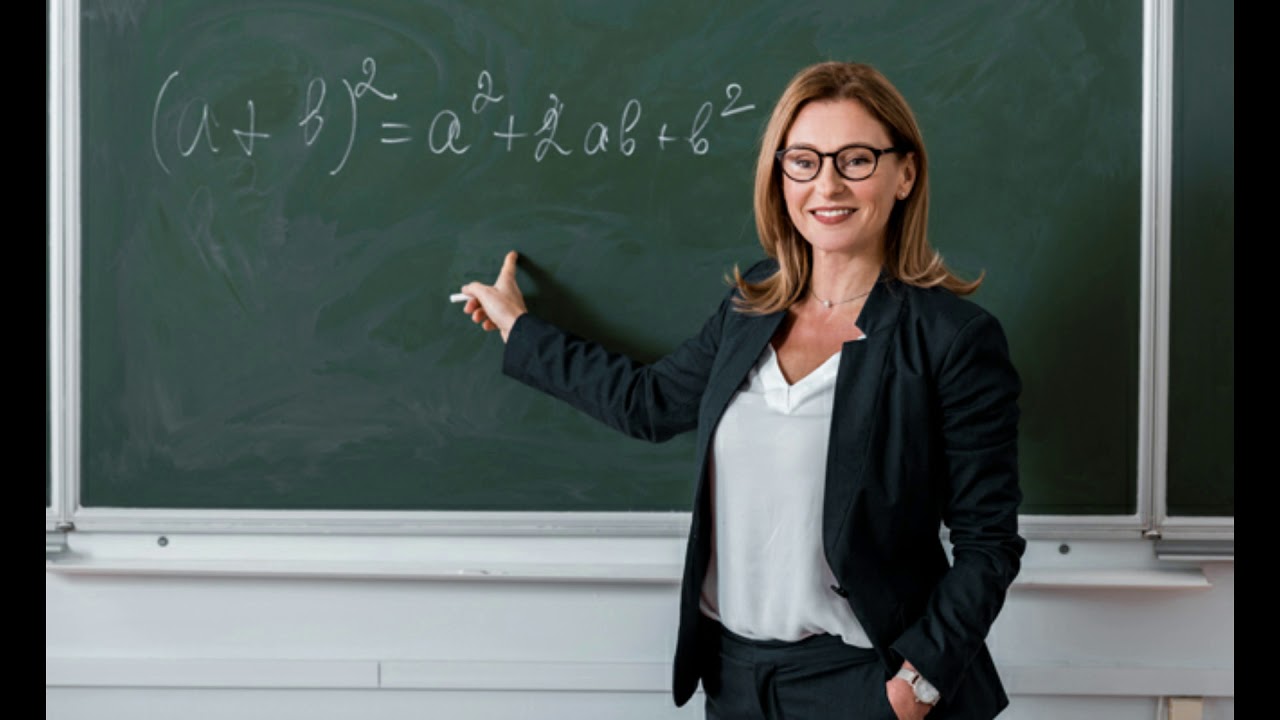 (a + b)² = a² + 2ab + b²